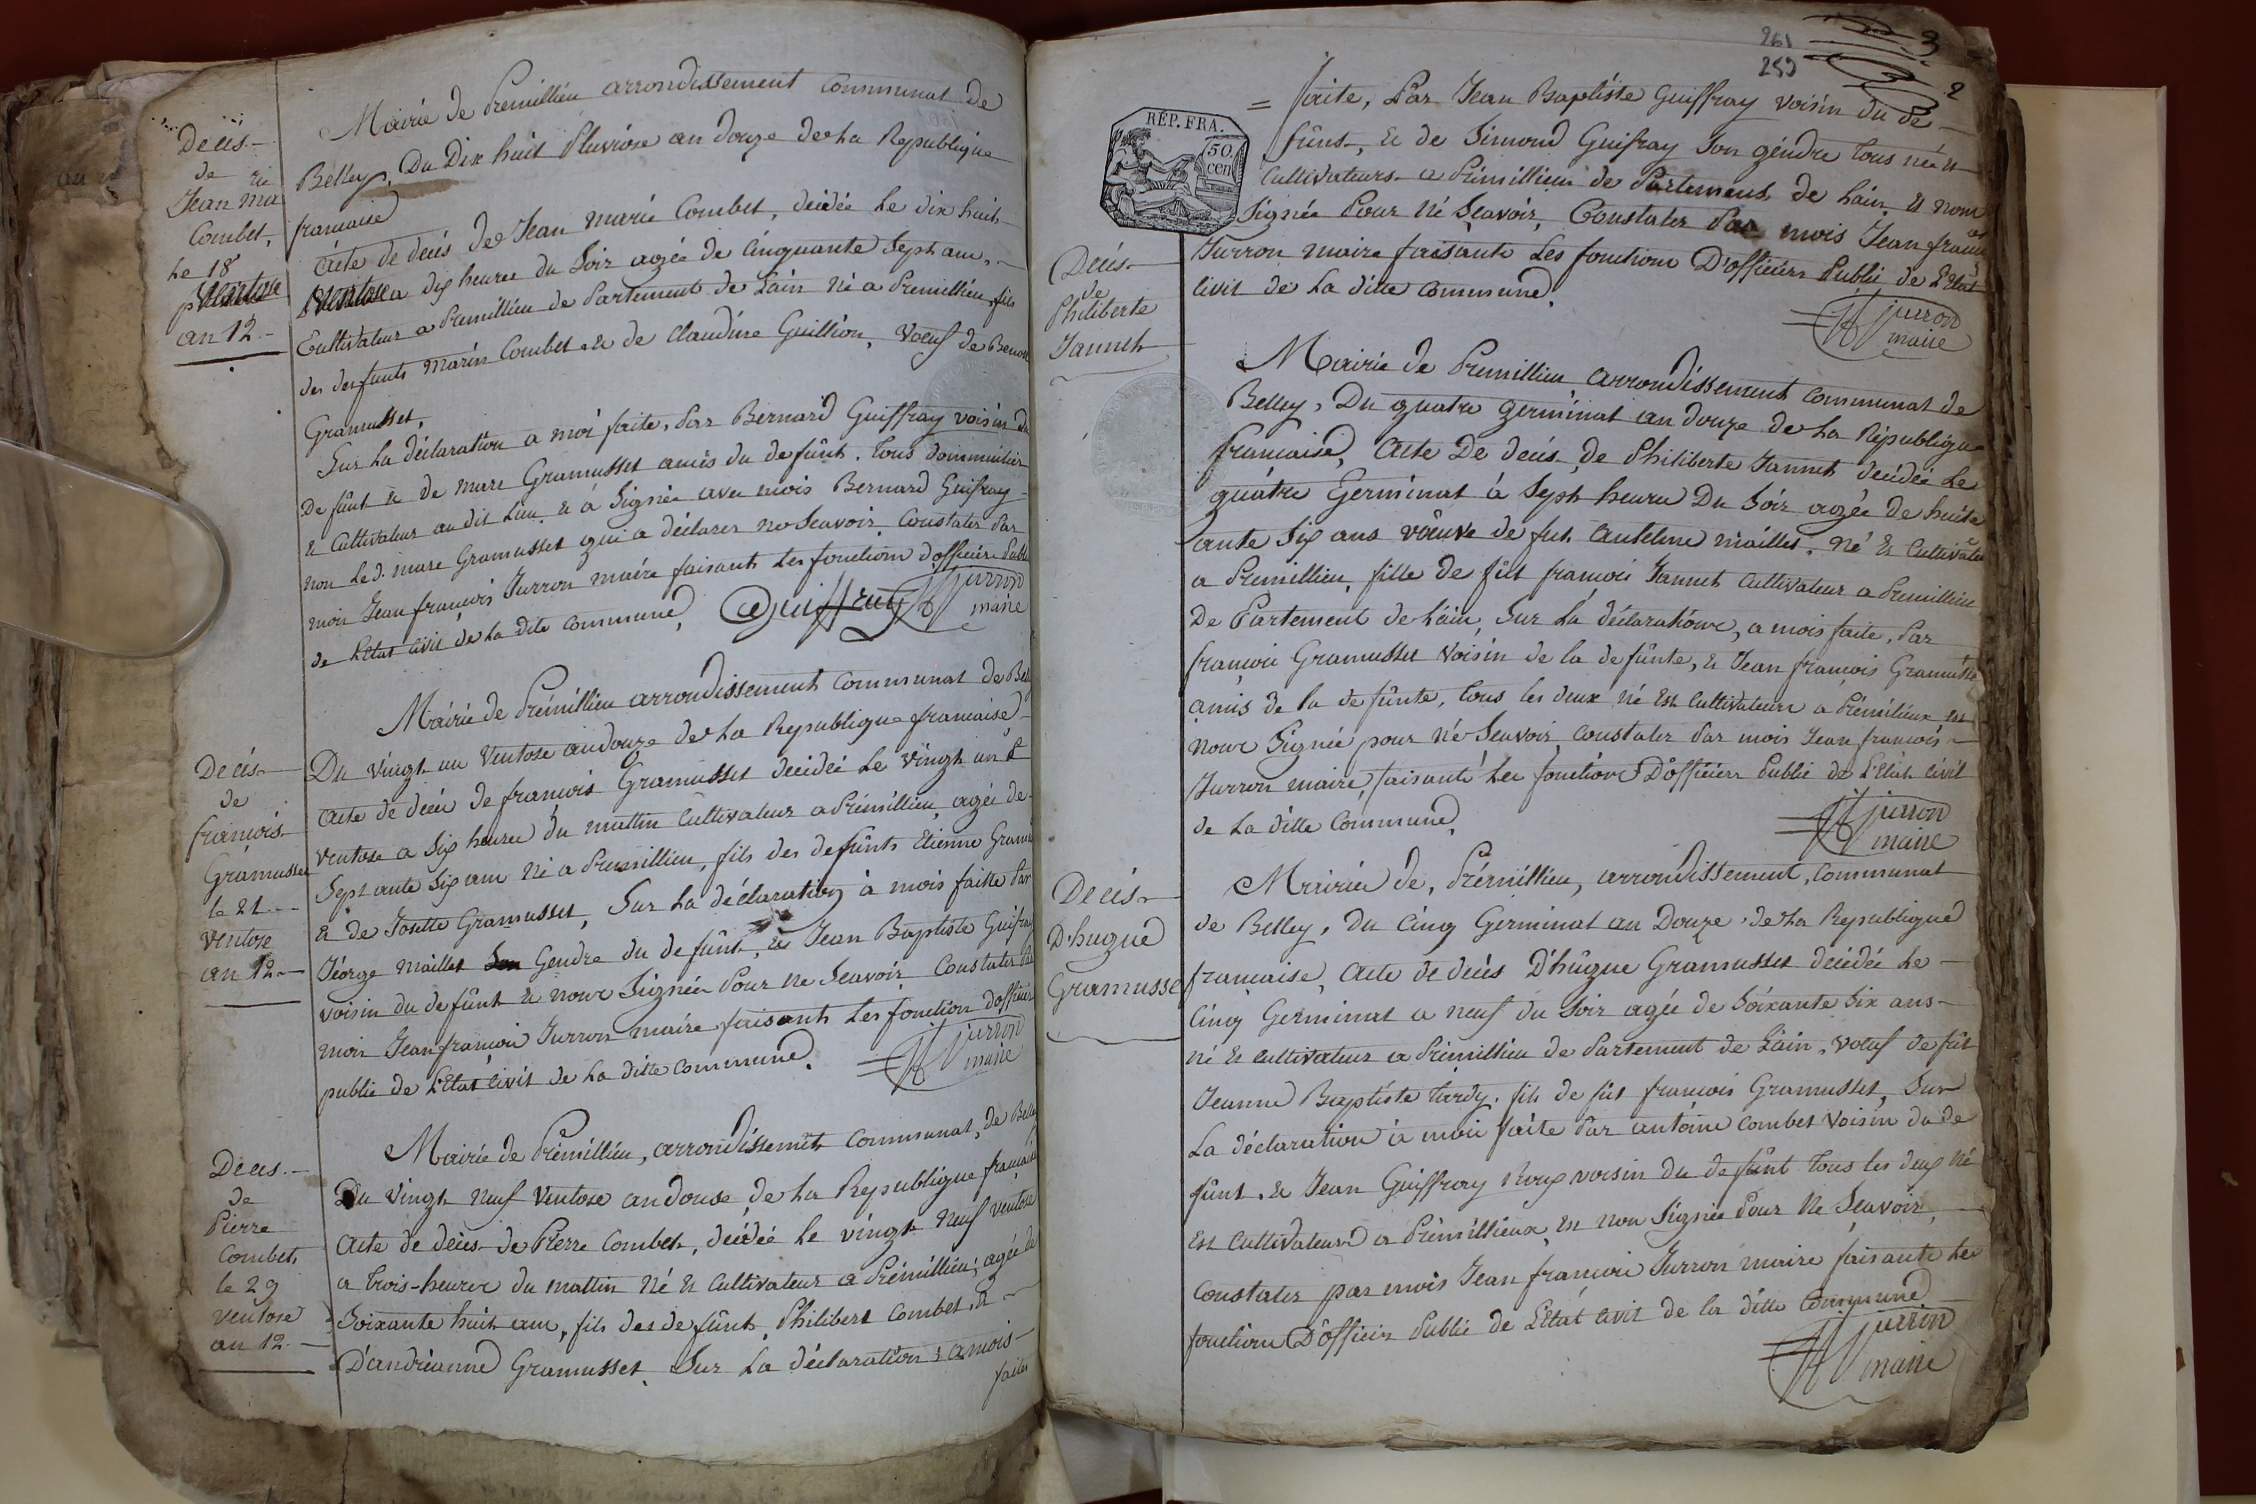 Decés
de
Jean ma
rie
Combet,
le 18
ventose
an 12
Mairie de Premillieu arrondissement Communal de
Belley, Du Dix huit Pluviose an douze de la Republique
francaise
Acte de decés de Jean marie Combet, décédée le dix huit
a dix heures du Soir agée de Cinquante Sept ans,
Cultivateur a Premillieu de Partement de Lain né a Premillieu, fils
des defunts Marin Combet & de Claudine Guillion, Voeuf de Benoite
Gramusset,
Sur la déclaration a moi faite, Par Bernard Guiffray voisin du
defûnt & de marc Gramusset amis du defûnt. tous dommicilier
& Cultivateur au dit Lieu & á Signée avec mois Bernard Guifray
non Led. marc Gramusset qui a déclarer ne Scavoir Constater Par
moi Jean françois Jurron maire faisants les fonctions d'officier Public
de L'Etat civil de la dite Commune,
Guiffray
Jurron
maire
Decés
de
françois
Gramusset
le 21
ventose
an 12
Mairie de Prémillieu arrondissement Communal de Belley
Du vingt un Ventose an douze de La Republique francaise
Acte de décès de francois Gramusset décidée Le Vingt un
Ventose a Six heures du mattin Cultivateur a Prémillieu, agée de
Sept ante Six ans né a Premillieu, fils des defûnts Etienne Gramu
& de Josette Gramusset, Sur la déclaration à mois faitte Par
Jéorge Maillet Gendre du defûnt, & Jean Baptiste Guifray
voisin du defûnt & nonc Signée Pour ne Scavoir Constater Par
mois Jean françois Jurron maire faisants les fonction d'officier
public de L'Etat civil de la ditte Commune.
Jurron
maire
Decés
de
Pierre
Combet
le 29
ventose
an 12
Mairie de Prémillieu, arrondissement Communal, de Belley
Du vingt neuf Ventose an douse de La Republique française
Acte de décès de Pierre Combet, décédée le vingt neuf ventose
a trois heures du mattin né & Cultivateur a Prémillieu, agée de
Soixante huit ans, fils des defûnts Philibert Combet, &
D'andréanne Gramusset. Sur La déclaration amois
faites
261
259
3
2
RÉP. FRA.
50
cen
= faite, Par Jean Baptiste Guiffray voisin du de
fûnt, & de Simond Guifray Son géndre tous né &
Cultivateurs a Prémillieu de Partement de Lain & nonc
Signée Pour Né Scavoir, Constater Par mois Jean francois
Jurron maire faisante Les fonctions D'officiers Public de L'Etat
civil de la ditte Commune.
Jurron
maire
Decés
de
Philiberte
Jannet
Mairie de Premillieu arrondissement Communal de
Belley, Du quatre Germinal an douze de la République
francaise, Acte De decés de Philiberte Jannet décédée Le
quátre Germinal á Sept heures Du Soir agée de huite
ante Six ans voeuve de fut Antelme Maillet, Né & Cultivateur
a Premillieu, fille de fût françois Jannet Cultivateur a Premillieu
De Partement de Lain, Sur La déclaration, a mois faite, Par
françois Gramusset Voisin de la defûnte, & Jean françois Gramusset
amis de la defûnte, tous les deux né Est Cultivateurs a Prémilieux est
nonc Signée pour né Scavoir Constater Par mois Jean francois
Jurron maire, faisante Les fonctions D'officiers Public de L'Etat Civil
de La ditte Commune,
Jurron
maire
Decés
D'hugue
Gramusse
Mairie de, Prémillieu, arrondissement, Communal
de Belley, du Cinq Germinal an Douze de La Republique
francaise, Acte de decés D'hûgue Gramusset décidée Le
Cinq Germinal a neuf du Soir agée de Soixante Six ans
né & cultivateur a Prémillieu de Partement de Lain, voeuf de fût
Jeanne Baptiste tardy. fils de fut françois Gramusset, Sur
La déclaration à mois faite Par antoine Combet voisin du de
fûnt. & Jean Guiffray voisin du defûnt tous les deux Né
Est Cultivateurs a Prémillieux, & non Signée Pour Ne Scavoir,
Constater par mois Jean francois Jurron maire faisante Les
fonctions D'officier Public de L'Etat civil de la ditte Commune
Jurron
maire